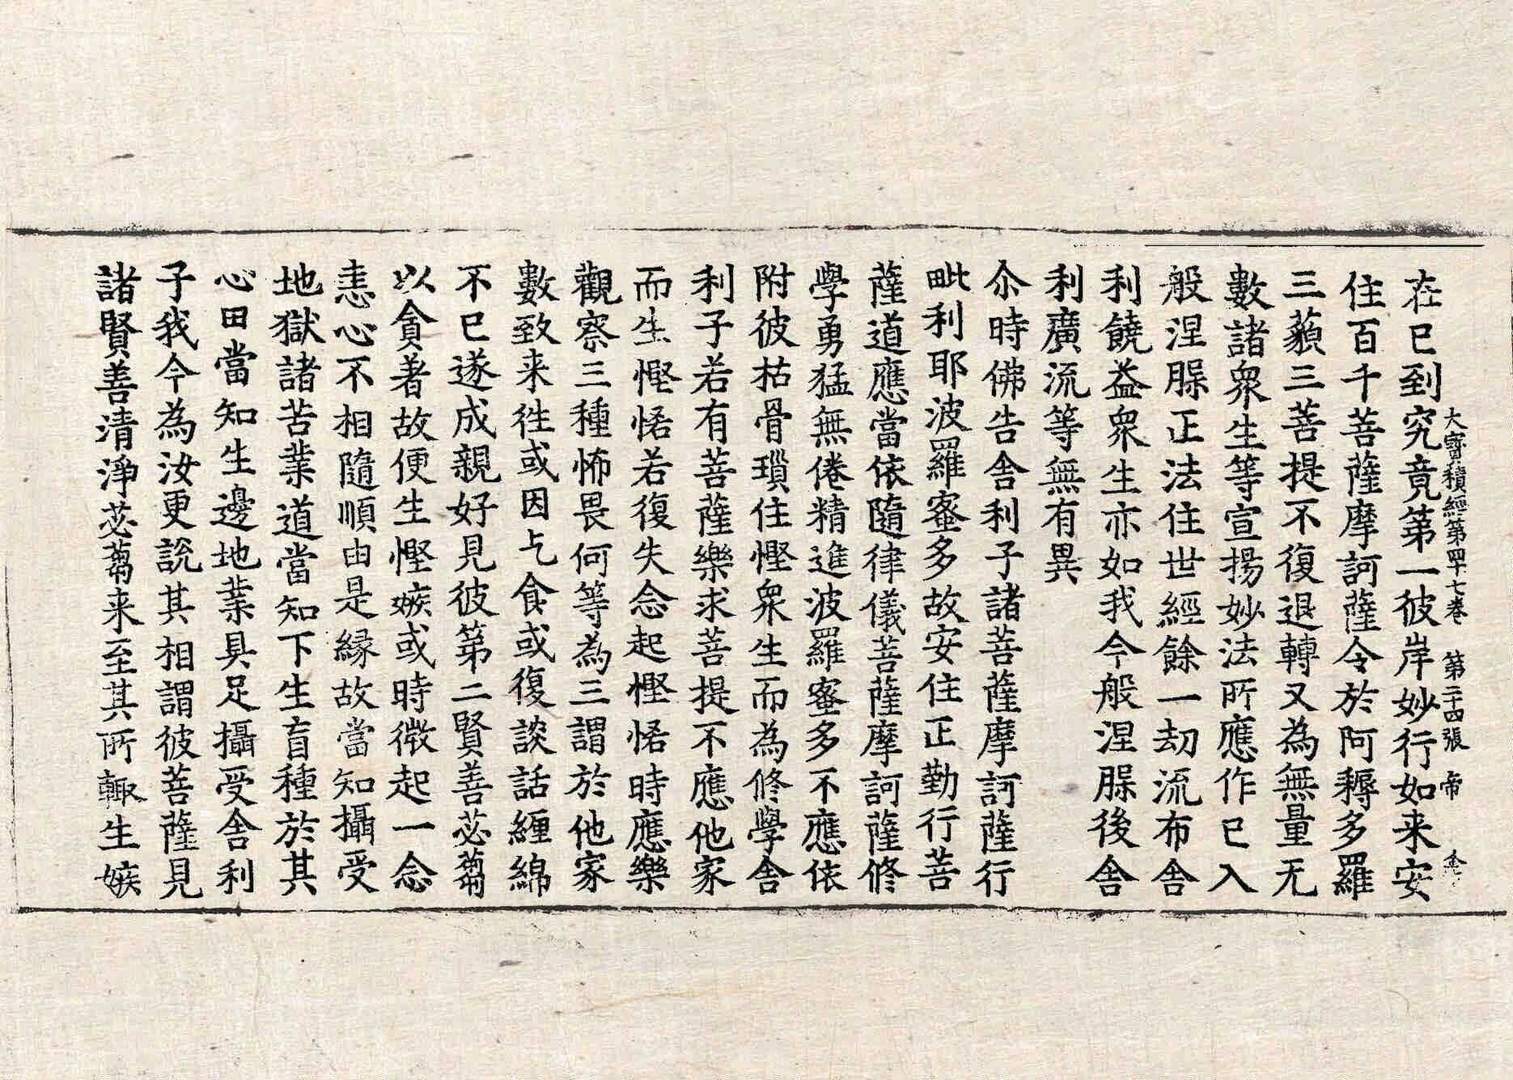 大寶積經第四十七卷 第二十四張 帝
在已到究竟第一彼岸妙行如来安
住百千菩薩摩訶薩令於阿耨多羅
三藐三菩提不復退轉又為無量无
數諸衆生等宣揚妙法所應作已入
般涅脲正法住世經餘一劫流布舍
利饒益衆生亦如我今般涅脲後舍
利廣流等無有異
尒時佛告舍利子諸菩薩摩訶薩行
毗利耶波羅蜜多故安住正勤行菩
薩道應當依隨律儀菩薩摩訶薩修
學勇猛無倦精進波羅蜜多不應依
附彼枯骨瑣住慳衆生而為修學舍
利子若有菩薩樂求菩提不應他家
而生慳悋若復失念起慳悋時應樂
觀察三種怖畏何等為三謂於他家
數致来往或因乞食或復談話纏綿
不已遂成親好見彼第二賢善苾蒭
以貪著故便生慳嫉或時微起一念
恚心不相隨順由是縁故當知攝受
地獄諸苦業道當知下生盲種於其
心田當知生邊地業具足攝受舍利
子我今為汝更說其相謂彼菩薩見
諸賢善清淨苾蒭来至其所輙生嫉